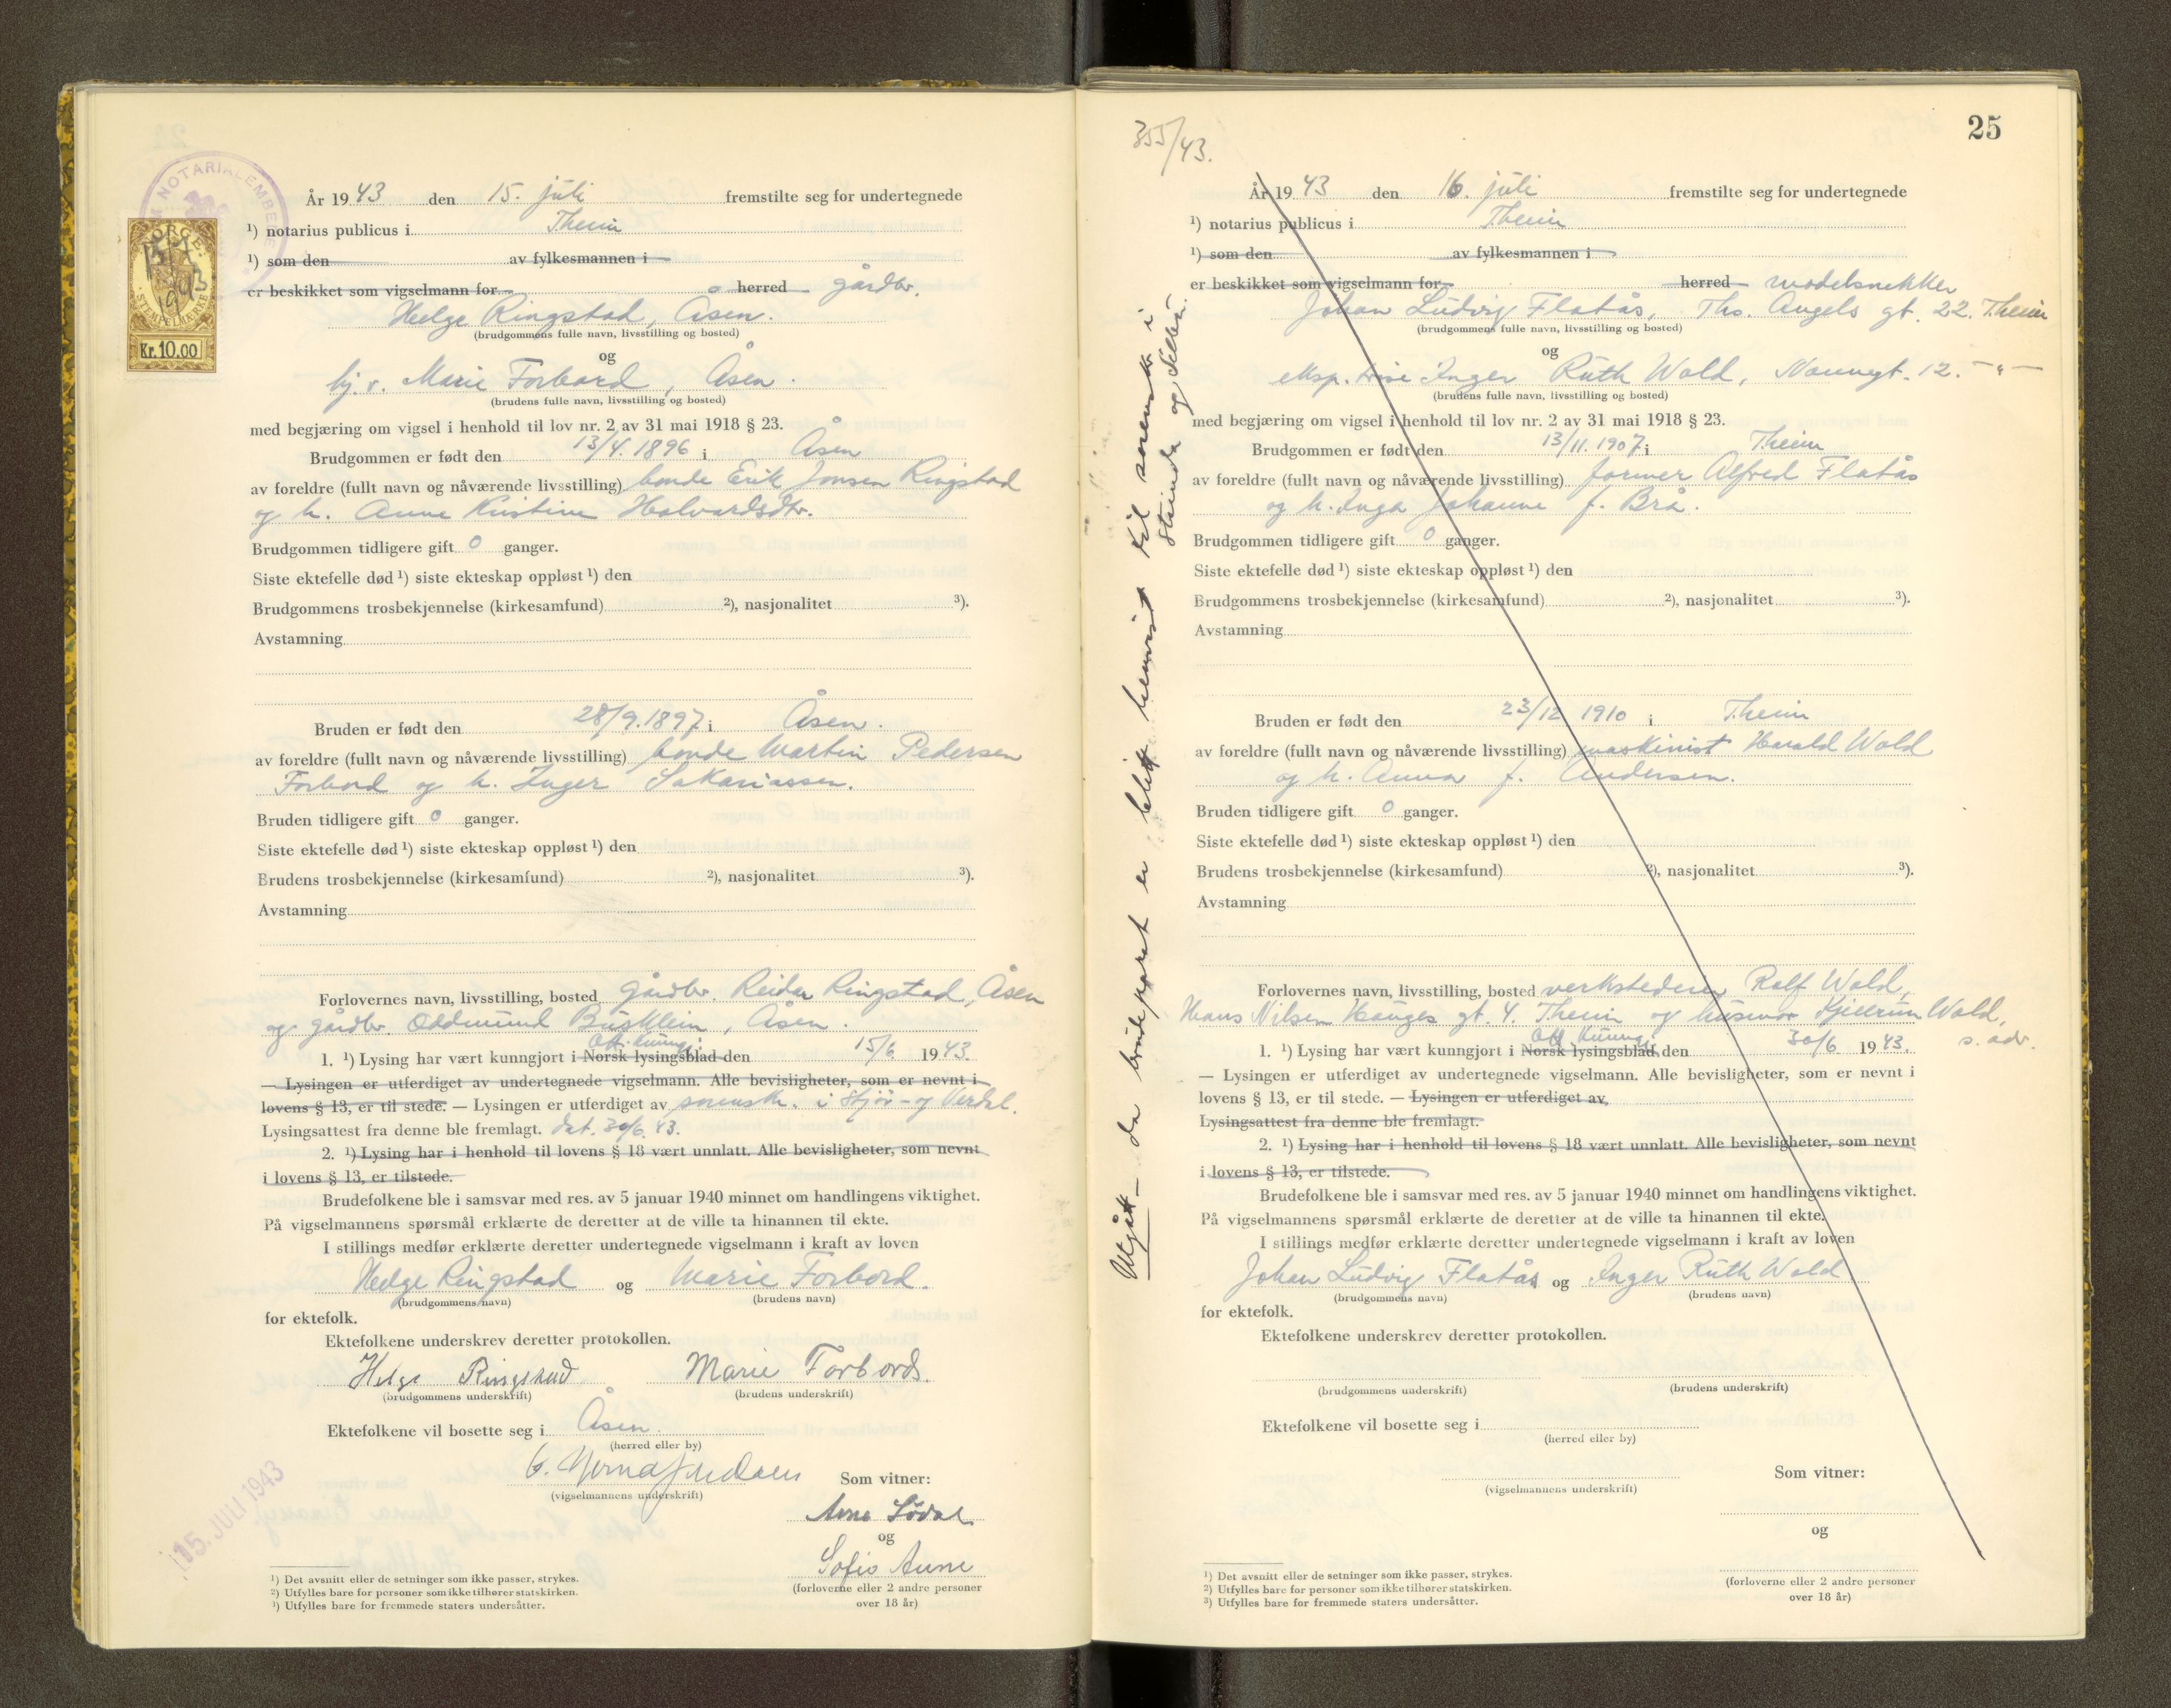 NOTARIALEMBE
NORGE
15/7
1943
STEMPELMERKE
Kr. 10.00
År 1943 den 15. juli fremstilte seg for undertegnede
¹) notarius publicus i Theim
¹) som den av fylkesmannen i
er beskikket som vigselmann for herred gårdbr.
Helge Ringstad, Åsen.
(brudgommens fulle navn, livsstilling og bosted)
og
hj. v. Marie Forbord, Åsen.
(brudens fulle navn, livsstilling og bosted)
med begjæring om vigsel i henhold til lov nr. 2 av 31 mai 1918 § 23.
Brudgommen er født den 13/4. 1896 i Åsen
av foreldre (fullt navn og nåværende livsstilling) bonde Erik Jonsen Ringstad
og h. Anne Kristine Halvardsdtr.
Brudgommen tidligere gift 0 ganger.
Siste ektefelle død ¹) siste ekteskap oppløst ¹) den
Brudgommens trosbekjennelse (kirkesamfund) ²), nasjonalitet ³).
Avstamning
Bruden er født den 28/9. 1897 i Åsen.
av foreldre (fullt navn og nåværende livsstilling) bonde Martin Pedersen
Forbord og h. Inger Sakariassen.
Bruden tidligere gift 0 ganger.
Siste ektefelle død ¹) siste ekteskap oppløst ¹) den
Brudens trosbekjennelse (kirkesamfund) ²), nasjonalitet ³).
Avstamning
Forlovernes navn, livsstilling, bosted gårdbr. Reidar Ringstad, Åsen
og gårdbr. Oddmund Busklein, Åsen.
Off. kunngj.
1. ¹) Lysing har vært kunngjort i Norsk lysingsblad den 15/6 1943.
— Lysingen er utferdiget av undertegnede vigselmann. Alle bevisligheter, som er nevnt i
lovens § 13, er til stede. — Lysingen er utferdiget av sorenskr. i Stjør- og Verdal.
Lysingsattest fra denne ble fremlagt. dat. 30/6. 43.
2. ¹) Lysing har i henhold til lovens § 18 vært unnlatt. Alle bevisligheter, som nevnt
i lovens § 13, er tilstede.
Brudefolkene ble i samsvar med res. av 5 januar 1940 minnet om handlingens viktighet.
På vigselmannens spørsmål erklærte de deretter at de ville ta hinannen til ekte.
I stillings medfør erklærte deretter undertegnede vigselmann i kraft av loven
Helge Ringstad og Marie Forbord.
(brudgommens navn) (brudens navn)
for ektefolk.
Ektefolkene underskrev deretter protokollen.
Helge Ringstad Marie Forbord.
(brudgommens underskrift) (brudens underskrift)
Ektefolkene vil bosette seg i Åsen.
(herred eller by)
(vigselmannens underskrift)
Som vitner:
Arne Lødal
og
Sofie Aune
(forloverne eller 2 andre personer
over 18 år)
15. JULI 1943
¹) Det avsnitt eller de setninger som ikke passer, strykes.
²) Utfylles bare for personer som ikke tilhører statskirken.
³) Utfylles bare for fremmede staters undersåtter.
25
355/43.
År 1943 den 16. juli fremstilte seg for undertegnede
¹) notarius publicus i Theim
¹) som den av fylkesmannen i
er beskikket som vigselmann for herred modelsnekker
Johan Ludvig Flatås, Ths. Angels gt. 22. Theim
(brudgommens fulle navn, livsstilling og bosted)
og
eksp. trise Inger Ruth Wold, Nonnegt. 12. - " -
(brudens fulle navn, livsstilling og bosted)
med begjæring om vigsel i henhold til lov nr. 2 av 31 mai 1918 § 23.
Brudgommen er født den 13/11. 1907 i Theim
av foreldre (fullt navn og nåværende livsstilling) former Alfred Flatås
og h. Inga Johanne f. Brå.
Brudgommen tidligere gift 0 ganger.
Siste ektefelle død ¹) siste ekteskap oppløst ¹) den
Brudgommens trosbekjennelse (kirkesamfund) ²), nasjonalitet ³).
Avstamning
Bruden er født den 23/12 1910 i Theim
av foreldre (fullt navn og nåværende livsstilling) maskinist Harald Wold
og h. Anna f. Andersen.
Bruden tidligere gift 0 ganger.
Siste ektefelle død ¹) siste ekteskap oppløst ¹) den
Brudens trosbekjennelse (kirkesamfund) ²), nasjonalitet ³).
Avstamning
Forlovernes navn, livsstilling, bosted Rolf Wold,
Hans Nilsen Hauges gt. 4. Theim og husmor Wold,
s. adr.
Off. kunngj.
1. ¹) Lysing har vært kunngjort i Norsk lysingsblad den 30/6 1943.
— Lysingen er utferdiget av undertegnede vigselmann. Alle bevisligheter, som er nevnt i
lovens § 13, er til stede. — Lysingen er utferdiget av
Lysingsattest fra denne ble fremlagt.
2. ¹) Lysing har i henhold til lovens § 18 vært unnlatt. Alle bevisligheter, som nevnt
i lovens § 13, er tilstede.
Brudefolkene ble i samsvar med res. av 5 januar 1940 minnet om handlingens viktighet.
På vigselmannens spørsmål erklærte de deretter at de ville ta hinannen til ekte.
I stillings medfør erklærte deretter undertegnede vigselmann i kraft av loven
Johan Ludvig Flatås og Inger Ruth Wold
(brudgommens navn) (brudens navn)
for ektefolk.
Ektefolkene underskrev deretter protokollen.
(brudgommens underskrift) (brudens underskrift)
Ektefolkene vil bosette seg i
(herred eller by)
(vigselmannens underskrift)
Som vitner:
og
(forloverne eller 2 andre personer
over 18 år)
¹) Det avsnitt eller de setninger som ikke passer, strykes.
²) Utfylles bare for personer som ikke tilhører statskirken.
³) Utfylles bare for fremmede staters undersåtter.
Utgått - da brudeparet er blitt henvist til sorenskr. i
Strinda og Selbu.